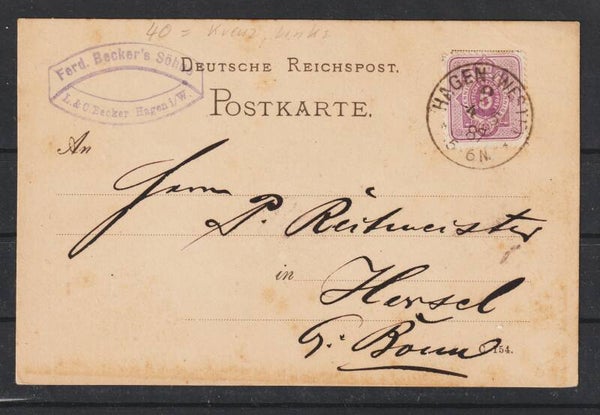 40 = Kreuz, links
Ferd. Becker's Söhne
L & C Becker Hagen i/W.
DEUTSCHE REICHSPOST.
POSTKARTE.
HAGEN (WESTF.)
9
5-6 N.
An
Herrn
P. Reitmeister
in
Hersel
b. Bonn
C. 154.